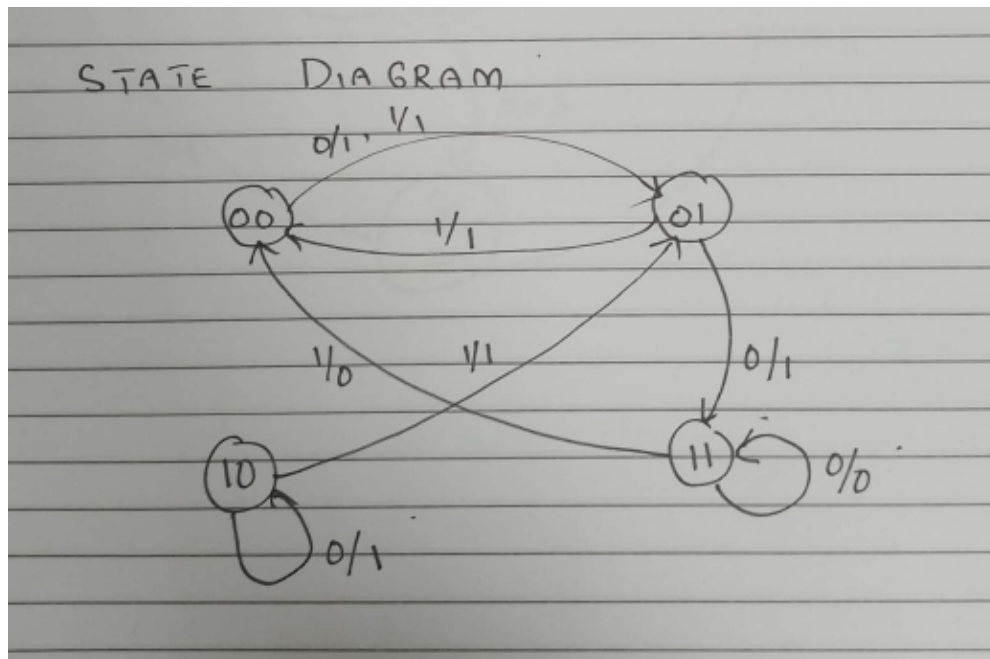 STATE DIAGRAM
0/1, 1/1
00
01
1/1
1/0
1/1
0/1
10
11
0/0
0/1